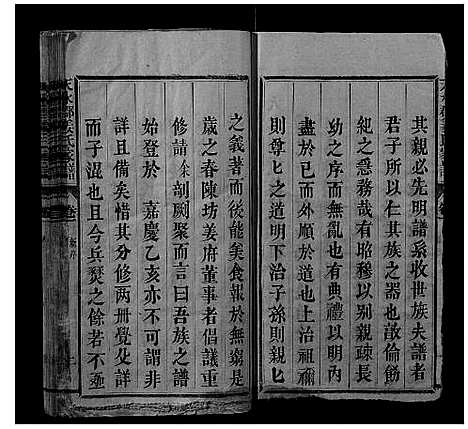 其親必先明譜系收世族夫譜者
君子所以仁其族之器也敬倫飭
紀之急務哉有昭穆以别親疎長
幼之序而無亂也有典禮以明內
盡於已而外順於道也上治祖禰
則尊匕之道明下治子孫則親匕
之義著而後能美食報於無窮是
歲之春陳坊姜府董事者倡議重
修請余剞劂聚而言曰吾族之譜
始登於　嘉慶乙亥亦不可謂非
詳且備矣惜其分修两冊覺彼詳
而子混也且今兵燹之餘若不亟